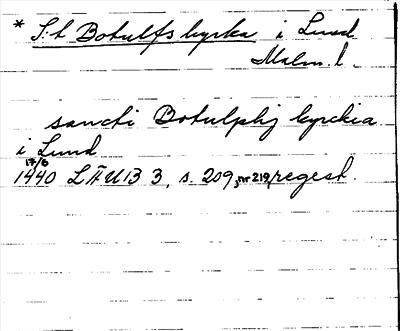 * S:t Botulfs kyrka i Lund
Malm. l.
sancti Botulphij kyrckia
i Lund
17/6
1440 LÄUB 3, s. 209, nr 219, regest.